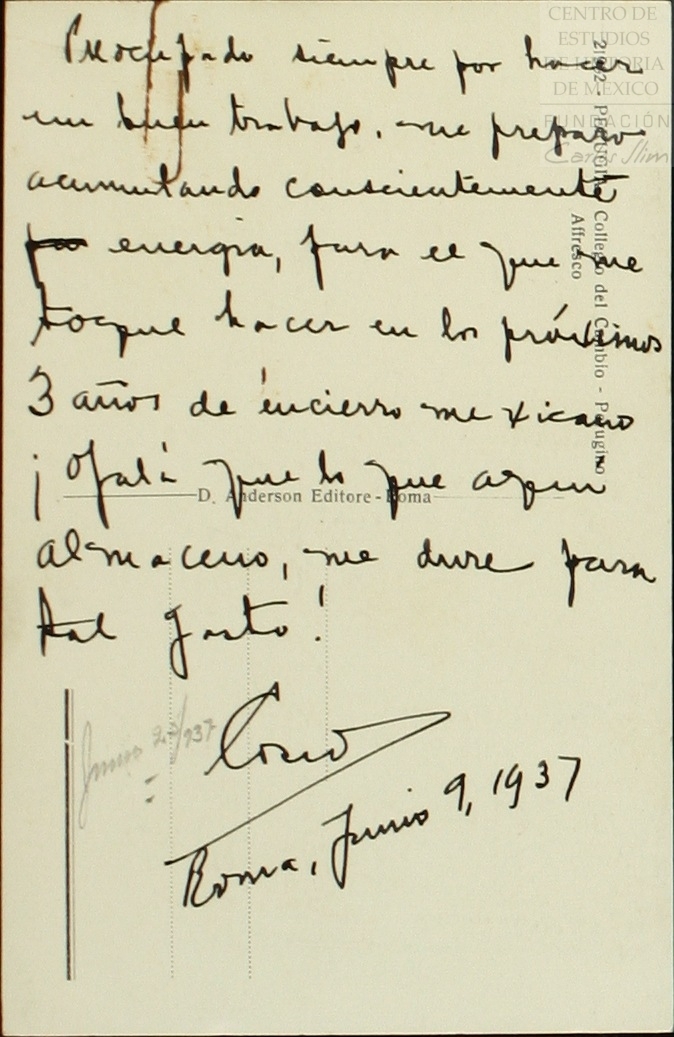 Preocupado siempre por hacer
un buen trabajo, me preparo
acumulando conscientemente
energia, para el que me
toque hacer en los próximos
3 años de encierro mexicano
¡Ojalá que lo que aqui
almaceno, me dure para
tal gasto!
Cosio
Roma, Junio 9, 1937
Junio 23/937
D. Anderson Editore - Roma
Collegio del Cambio - Perugino
Affresco
CENTRO DE
ESTUDIOS
DE HISTORIA
DE MÉXICO
FUNDACIÓN
Carlos Slim